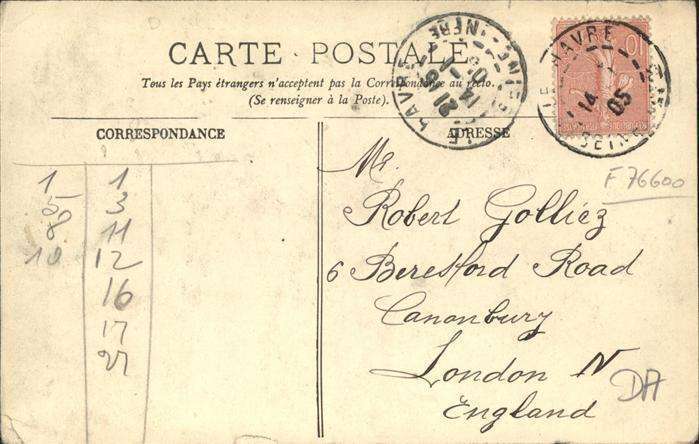 CARTE POSTALE
Tous les Pays étrangers n'acceptent pas la Correspondance au recto.
(Se renseigner à la Poste).
CORRESPONDANCE
ADRESSE
LE HAVRE
LE HAVRE
14
05
SEINE
10
F 76600
Mr.
Robert Golliez
6 Beresford Road
Canonbury
London N
England
DA
1 1
5 3
8 11
10 12
16
17
27